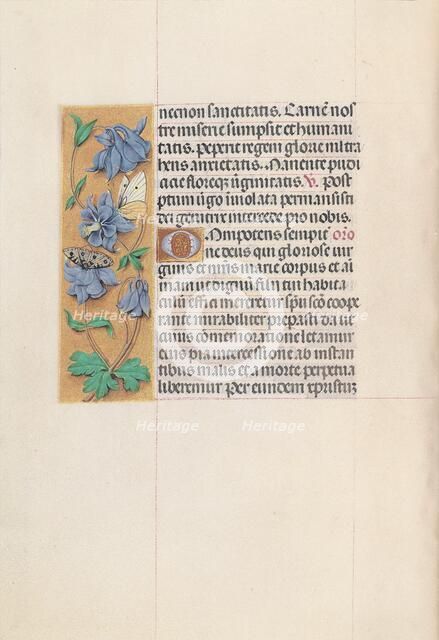 necnon sanctitatis. Carnē nos
tre miserie sumpsit et humani
tatis. Peperit regem glorie mū tra
hens anxietatis. Manente pudi
cicie floreqʒ ūginitatis. V. Post
partum ūgo inviolata permansisti
dei genitrix intercede pro nobis.
Omnipotens sempit oro
ne deus qui gloriose vir
ginis et mris marie corpus et ai
mam ut dignū filii tui habita
culū effici mereretur spū scō coope
rante mirabiliter preparasti da ut
cuius comemoratione letamur
eius pia intercessione ab instan
tibus malis et a morte perpetua
liberemur Per eundem xpristuʒ
Heritage Heritage
Heritage Heritage
Heritage Heritage